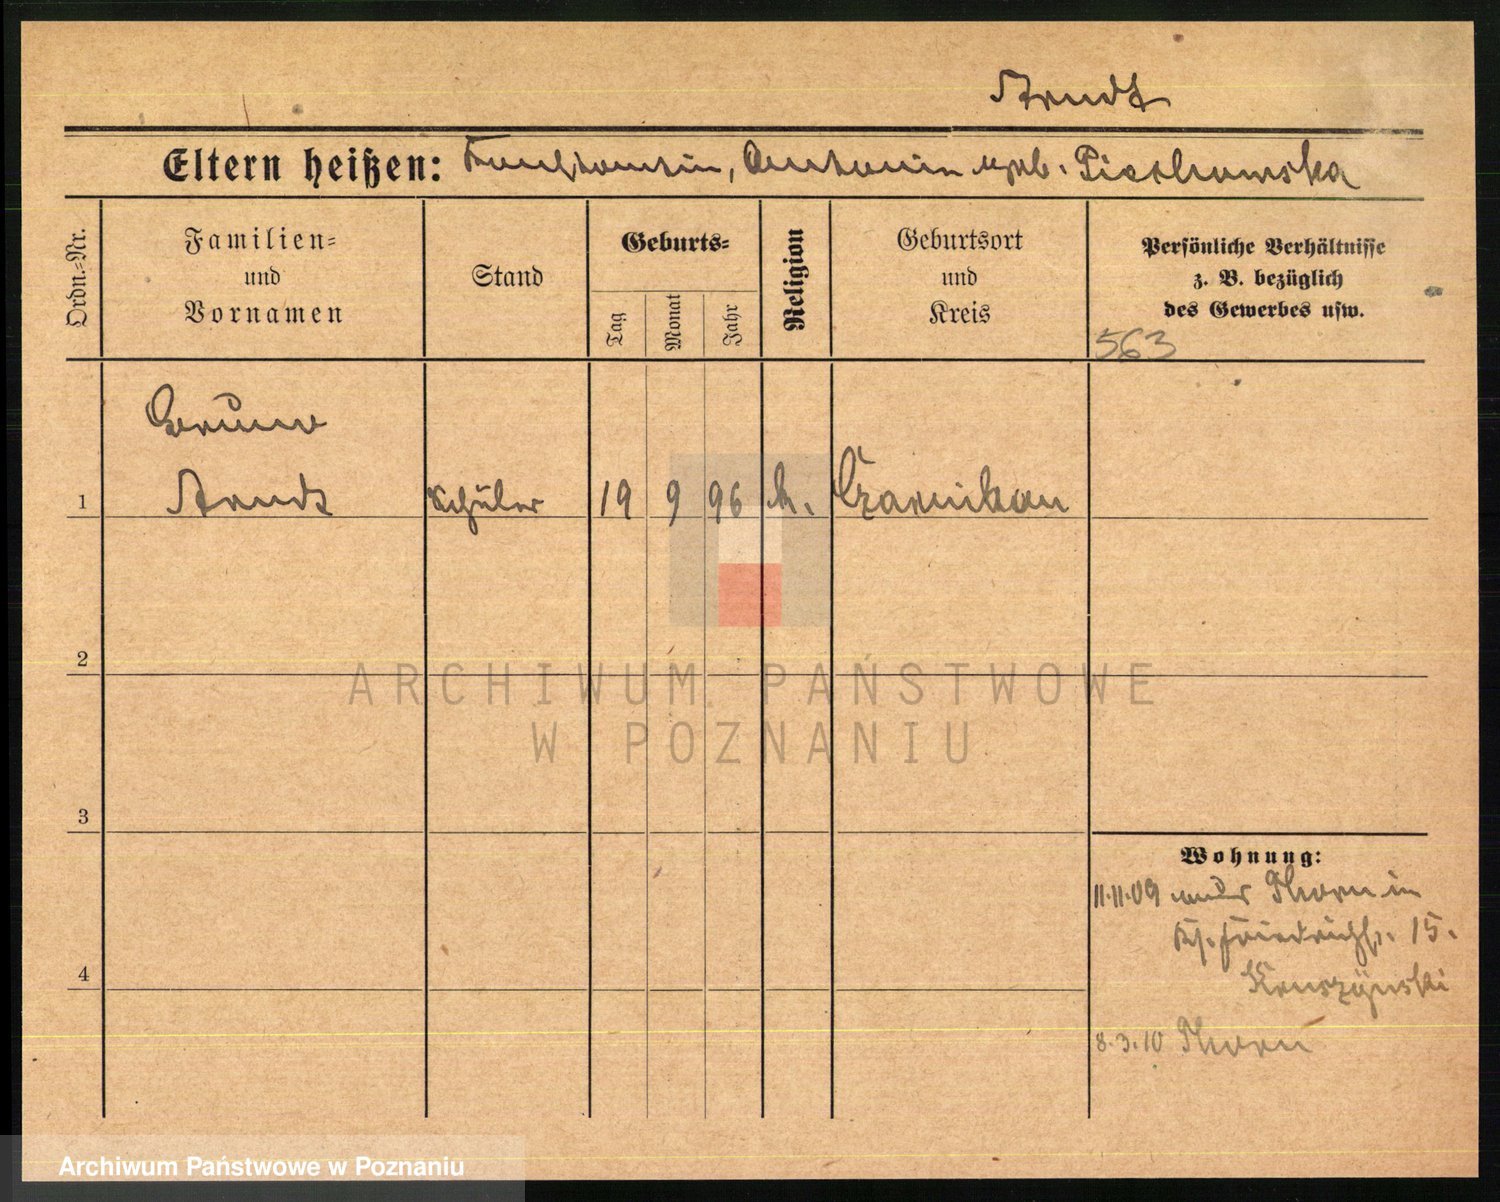 Arndt
Eltern heißen: Konstantin, Antonie geb. Piechowska
Ordn.=Nr.
Familien=
und
Vornamen
Stand
Geburts=
Tag
Monat
Jahr
Religion
Geburtsort
und
Kreis
Persönliche Verhältnisse
z. B. bezüglich
des Gewerbes usw.
563
Bruno
1 Arndt Schüler 19 9 96 k. Czarnikau
2
3
4
Wohnung:
11.11.09 Thorn in
Friedrichstr. 15.
Kruszynski
8.3.10 Thorn
ARCHIWUM PAŃSTWOWE
W POZNANIU
Archiwum Państwowe w Poznaniu